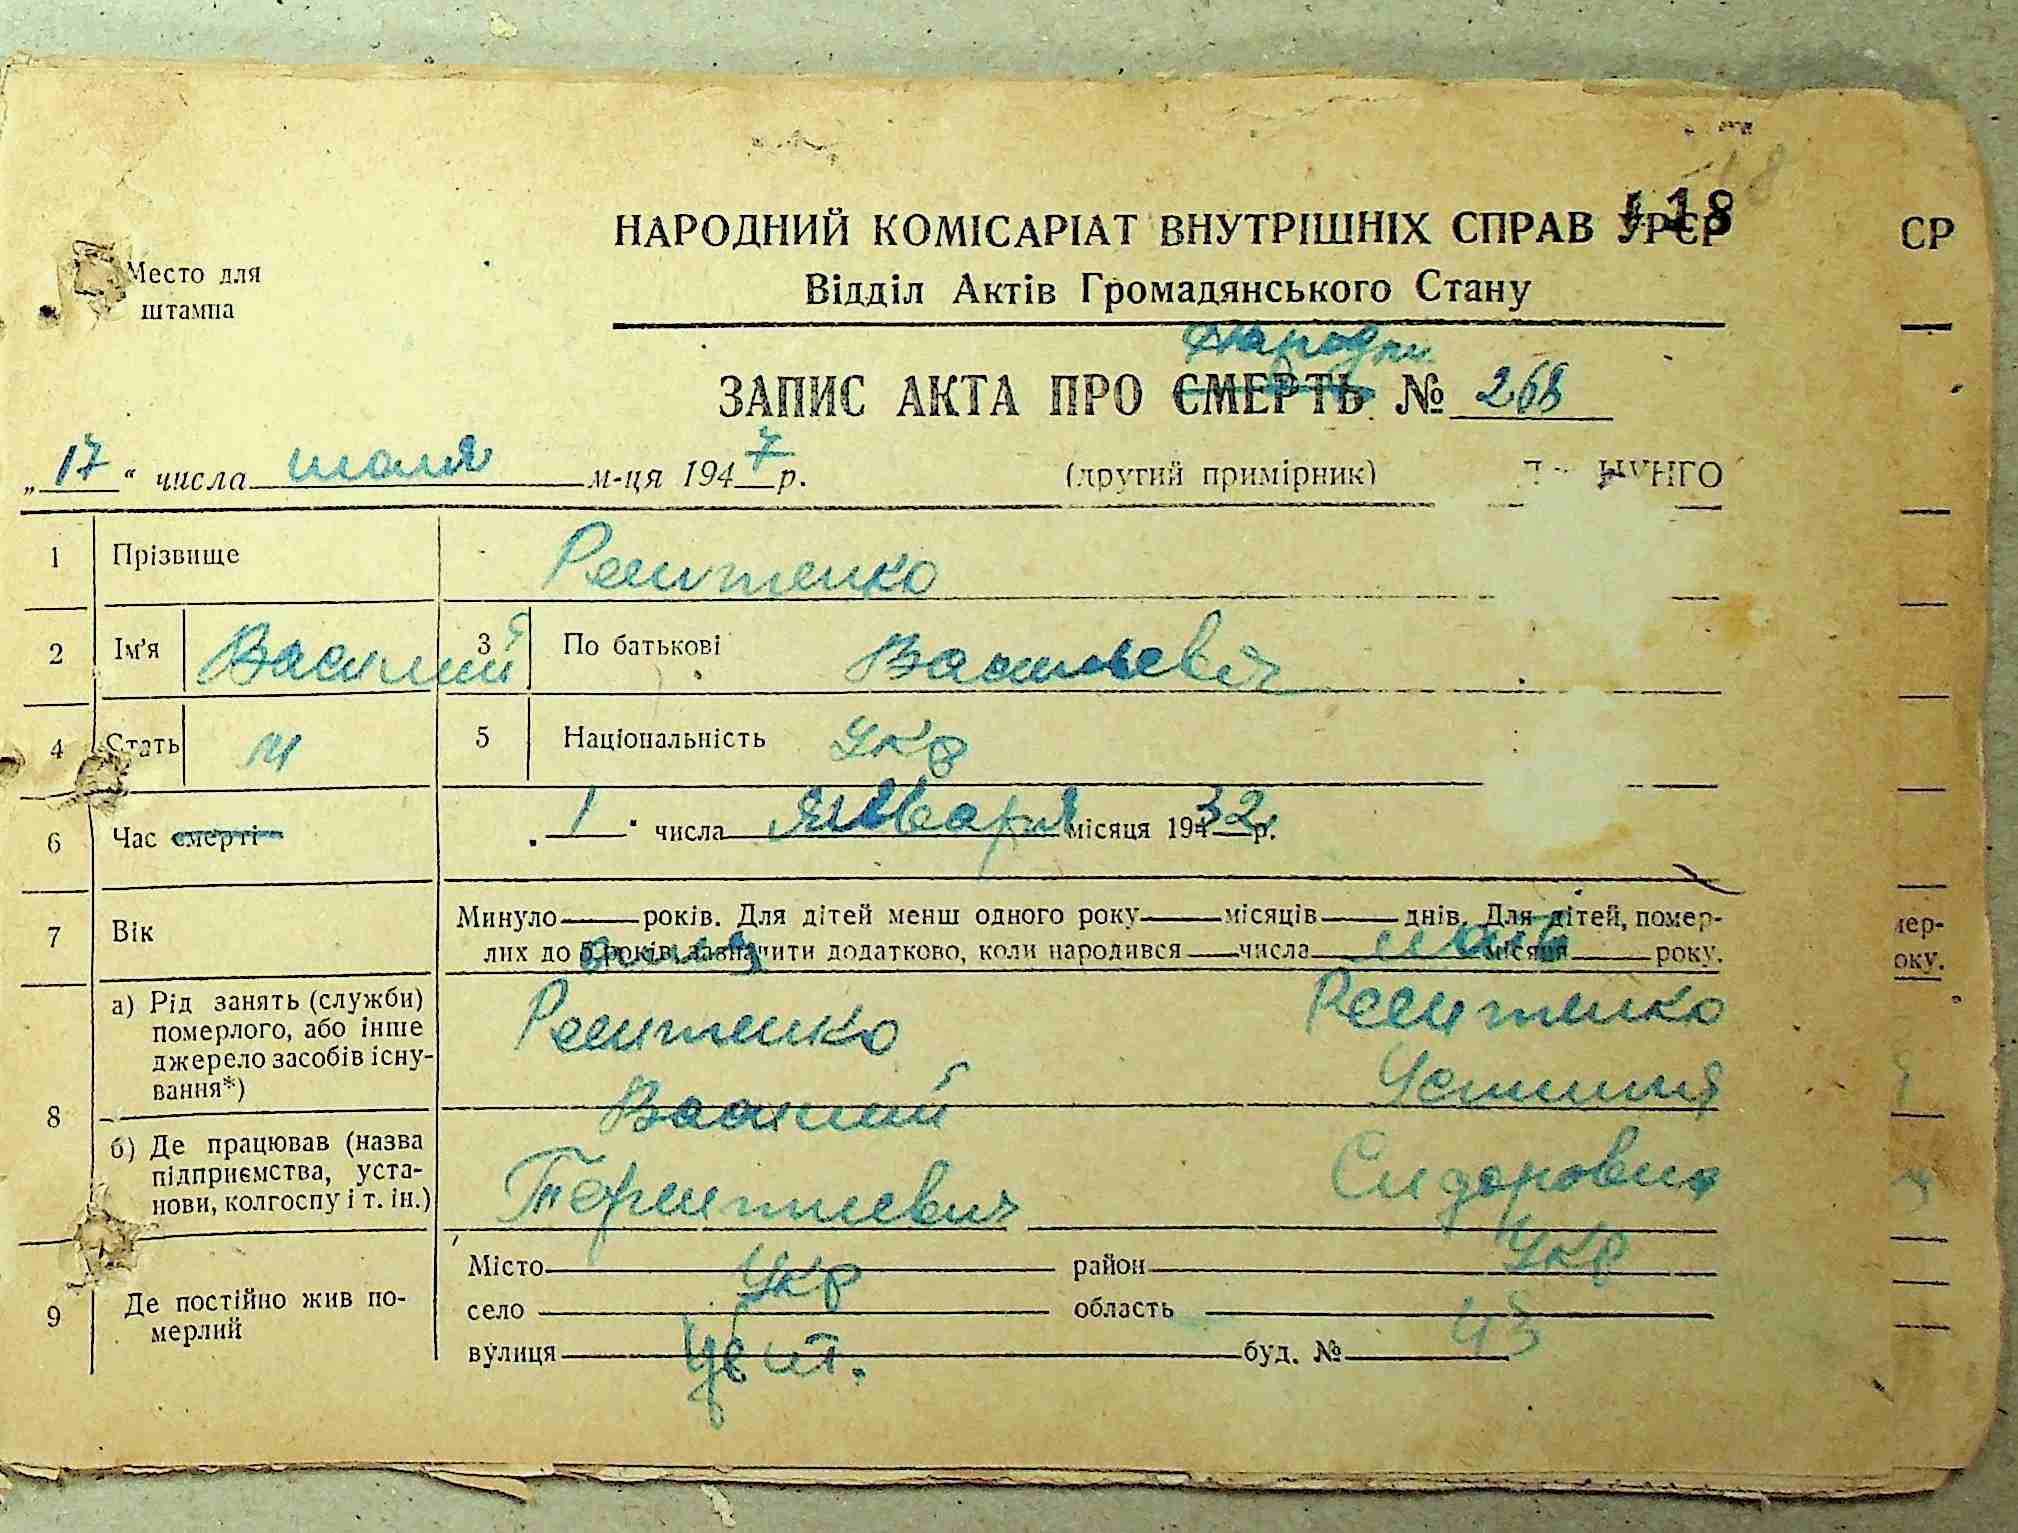 118
НАРОДНИЙ КОМІСАРІАТ ВНУТРІШНІХ СПРАВ УРСР
СР
Место для
штампа
Відділ Актів Громадянського Стану
ЗАПИС АКТА ПРО СМЕРТЬ № 268
„17“ числа июля м-ця 1947 р. (другий примірник)
1 Прізвище Решитенко
2 Ім'я Василий 3 По батькові Васильевич
4 Стать м 5 Національність укр
6 Час смерті 1 числа января місяця 1932 р.
7 Вік Минуло років. Для дітей менш одного року місяців днів. Для дітей, помер-
лих до 5 років, зазначити додатково, коли народився числа місяця року.
мер-
оку.
мать
8 а) Рід занять (службы)
померлого, або інше
джерело засобів існу-
вання*)
Решитенко Решитенко
Василий
б) Де працював (назва
підприємства, уста-
нови, колгоспу і т. ін.)
Терентиевич Сидоровна
9 Де постійно жив по-
мерлий
Місто район
укр укр
село область
вулиця буд. №
43